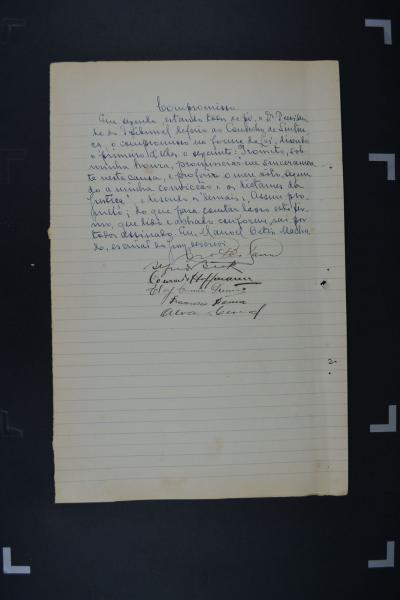 Compromisso
Em seguida, estando todos de pé, o Dr. Presiden-
te do Tribunal deferio ao Conselho de Senten-
ça, o compromisso na forma da lei, dizendo
o primeiro delles o seguinte: Prometto, sob
minha honra, pronunciar-me sinceramen-
te nesta causa, e proferir o meu voto, segun-
do a minha convicção e os dictames da
justiça, e dizendo os demais: Assim pro-
metto; do que para constar lavro este ter-
mo, que lido e achado conforme, vai por
todos assignado. Eu, Manoel
do, escrivão do jury, escrevi
Beck
Conrado Hoffmann
Francisco